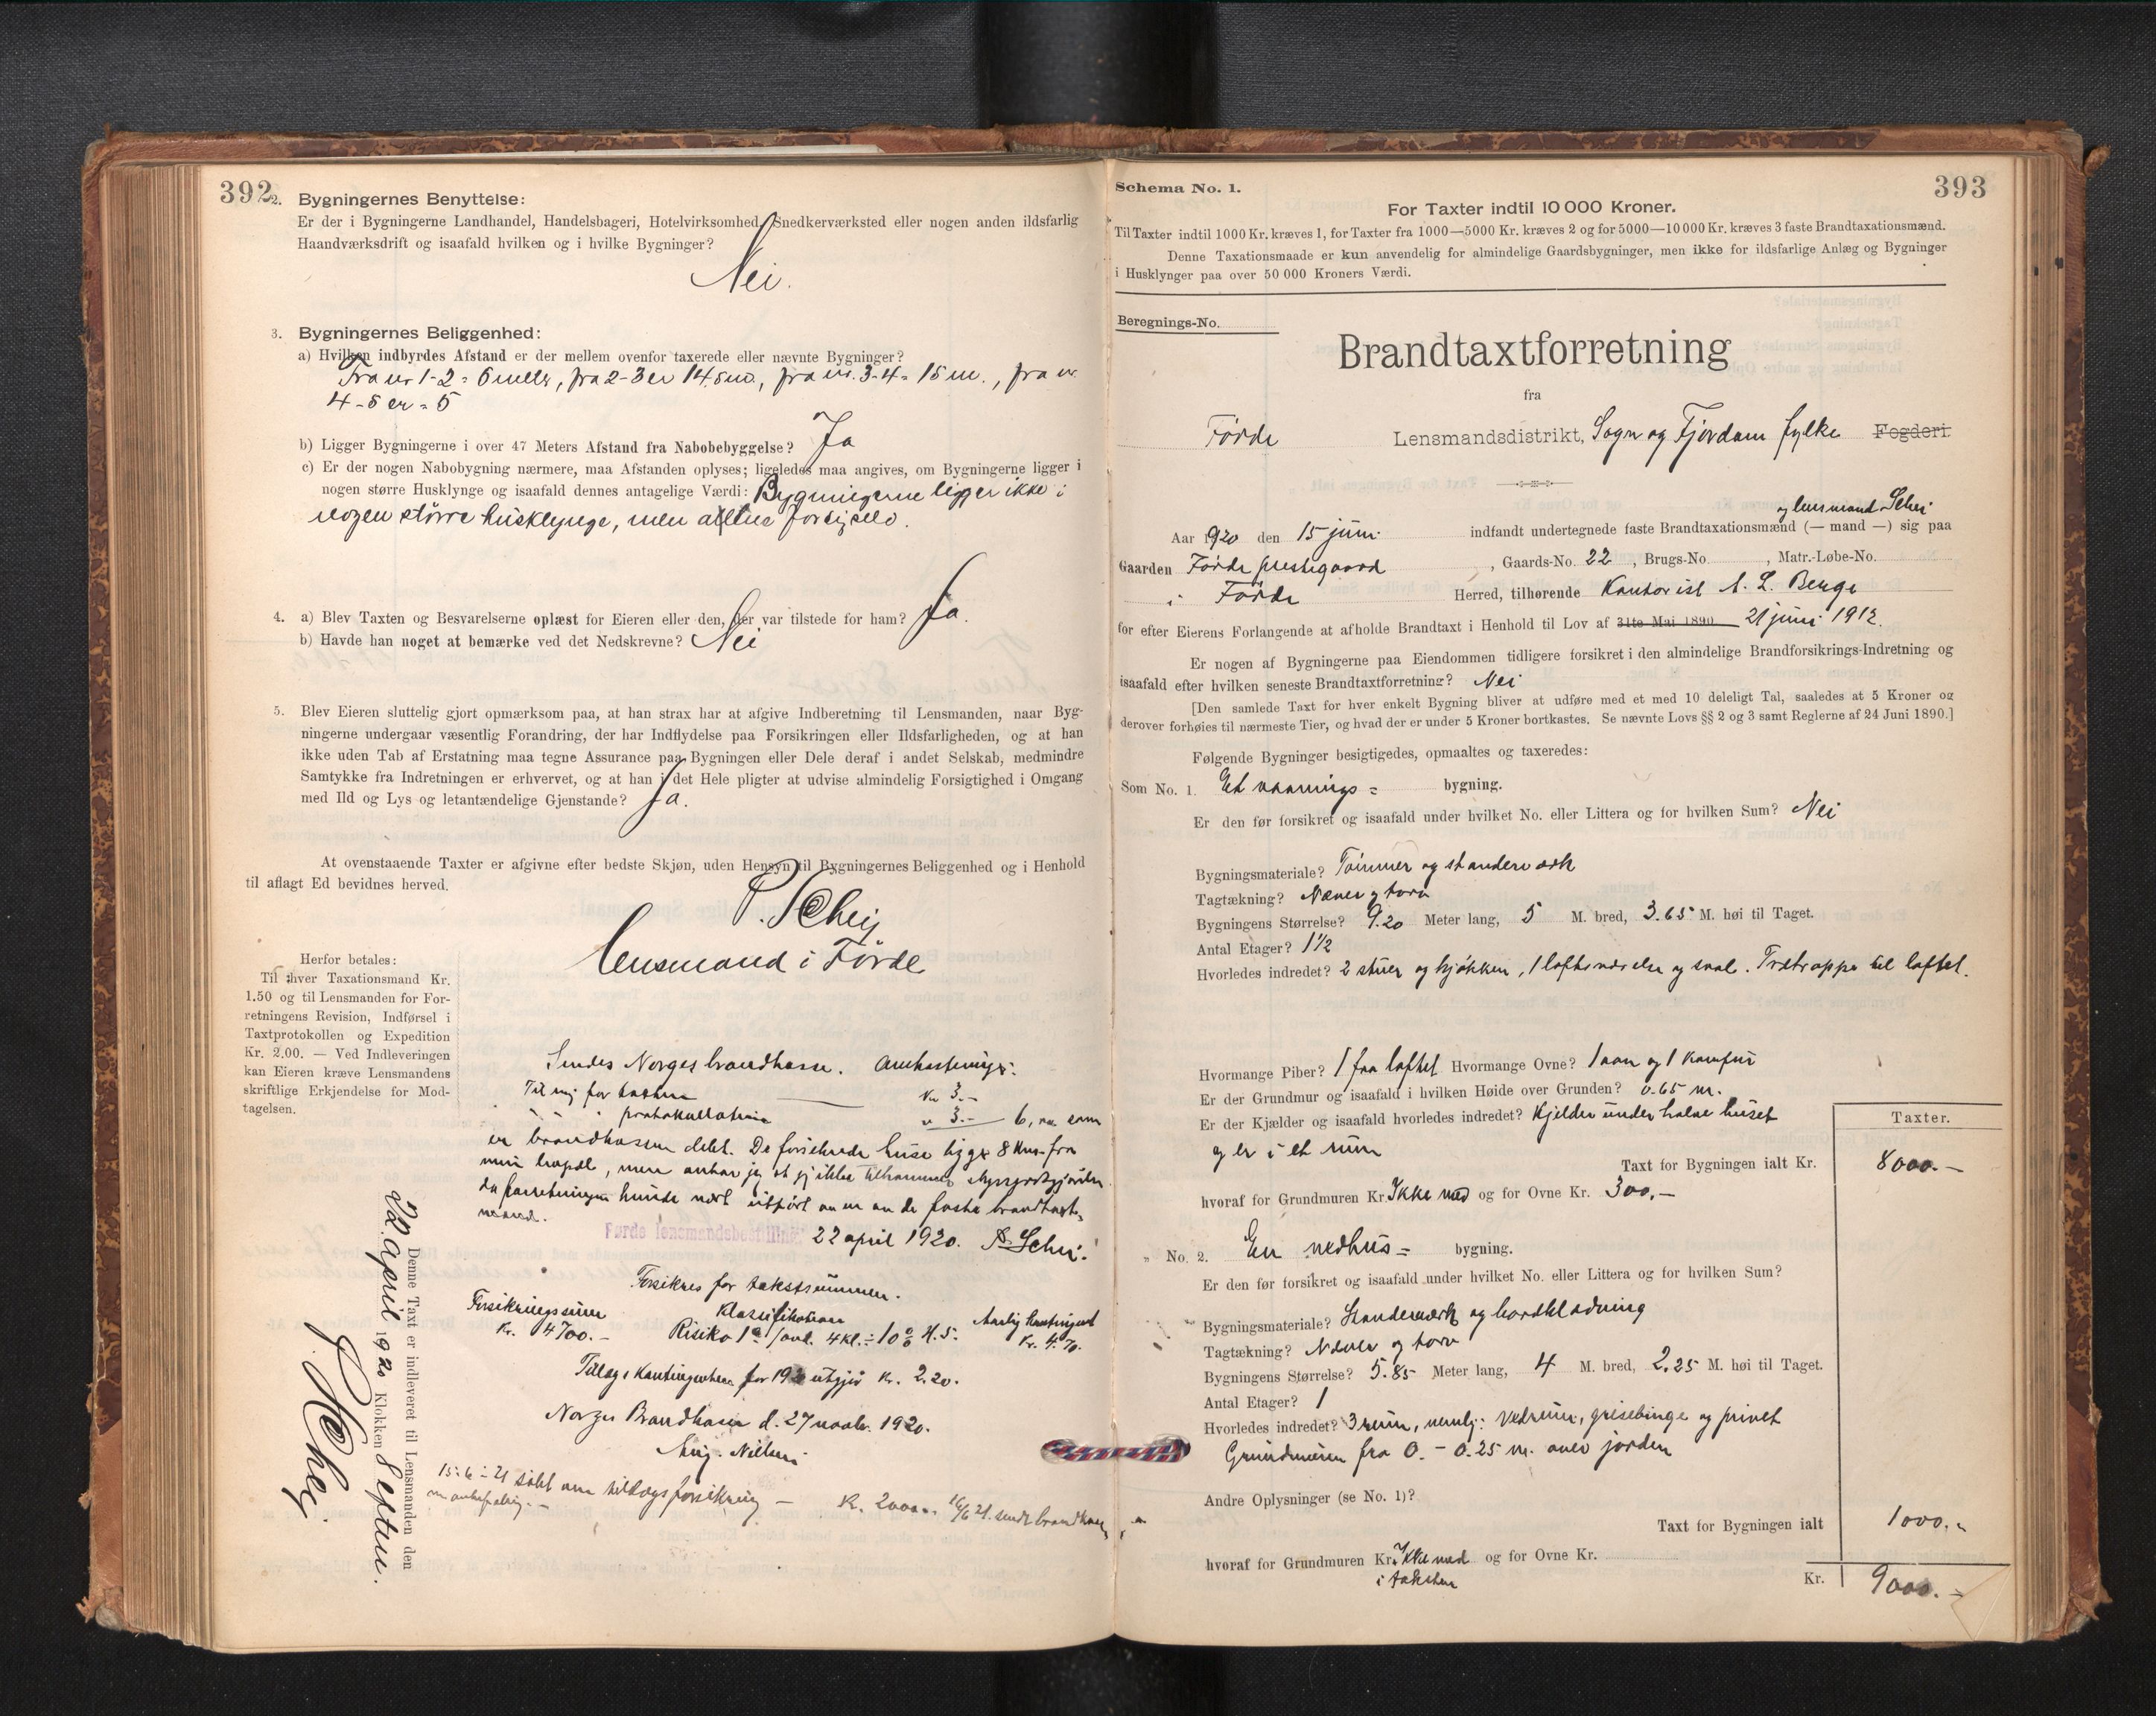 392
2. Bygningernes Benyttelse:
Er der i Bygningerne Landhandel, Handelsbageri, Hotelvirksomhed, Snedkerværksted eller nogen anden ildsfarlig
Haandværksdrift og isaafald hvilken og i hvilke Bygninger?
Nei.
3. Bygningernes Beliggenhed:
a) Hvilken indbyrdes Afstand er der mellem ovenfor taxerede eller nævnte Bygninger?
Fra nr 1-2 = 6 meter, fra 2-3 er 14.5 m., fra nr. 3-4 = 15 m., fra nr.
4-5 er = 5
b) Ligger Bygningerne i over 47 Meters Afstand fra Nabobebyggelse? Ja
c) Er der nogen Nabobygning nærmere, maa Afstanden oplyses; ligeledes maa angives, om Bygningerne ligger i
nogen større Husklynge og isaafald dennes antagelige Værdi: Bygningerne ligger ikke i
nogen större husklynge, men alene for sig selv.
4. a) Blev Taxten og Besvarelserne oplæst for Eieren eller den, der var tilstede for ham? Ja.
b) Havde han noget at bemærke ved det Nedskrevne? Nei
5. Blev Eieren sluttelig gjort opmærksom paa, at han strax har at afgive Indberetning til Lensmanden, naar Byg-
ningerne undergaar væsentlig Forandring, der har Indflydelse paa Forsikringen eller Ildsfarligheden, og at han
ikke uden Tab af Erstatning maa tegne Assurance paa Bygningen eller Dele deraf i andet Selskab, medmindre
Samtykke fra Indretningen er erhvervet, og at han i det Hele pligter at udvise almindelig Forsigtighed i Omgang
med Ild og Lys og letantændelige Gjenstande? Ja.
At ovenstaaende Taxter er afgivne efter bedste Skjøn, uden Hensyn til Bygningernes Beliggenhed og i Henhold
til aflagt Ed bevidnes herved.
P. Schej
lensmand i Förde
Herfor betales:
Til hver Taxationsmand Kr.
1.50 og til Lensmanden for For-
retningens Revision, Indførsel i
Taxtprotokollen og Expedition
Kr. 2.00. — Ved Indleveringen
kan Eieren kræve Lensmandens
skriftlige Erkjendelse for Mod-
tagelsen.
Sendes Norges brandkasse.
Til mig for taksten Kr 3.-
3.- 6, som
er brandkassen debet. De forsikrede huse ligger 8 km. fra
min bopæl, men antar jeg at jeg ikke tilkommer
da forretningen kunde vært utfört av en av de faste brandtakst-
mænd.
Førde lensmandsbestilling 22 april 1920. P. Schei.
Forsikres for takstsummen.
Forsikringssum Klassifikation Aarlig kontingent
Kr. 4700.- Risiko 1a 4 kl. ÷ 10% H.S. Kr. 4.70.
Tillægskontingenten for 1920 utgjør Kr. 2.20.
Norges Brandkasse d. 27 novbr. 1920.
Aug. Nielsen
15-6-21 sökt om tillægsforsikring — Kr. 2000.- 16/6 21. sendt brandkas
m anbefaling.-
Denne Taxt er indleveret til Lensmanden den
22 april 1920 Klokken 8 eftm.
P. Schej.
Schema No. 1. 393
For Taxter indtil 10 000 Kroner.
Til Taxter indtil 1000 Kr. kræves 1, for Taxter fra 1000—5000 Kr. kræves 2 og for 5000—10 000 Kr. kræves 3 faste Brandtaxationsmænd.
Denne Taxationsmaade er kun anvendelig for almindelige Gaardsbygninger, men ikke for ildsfarlige Anlæg og Bygninger
i Husklynger paa over 50 000 Kroners Værdi.
Beregnings-No.
Brandtaxtforretning
fra
Förde Lensmandsdistrikt, Sogn og Fjordane fylke Fogderi.
og lensmand Schei
Aar 1920 den 15 juni indfandt undertegnede faste Brandtaxationsmænd (— mand —) sig paa
Gaarden Förde prestegaard, Gaards-No. 22, Brugs-No., Matr.-Løbe-No.
i Förde Herred, tilhørende Kontorist A. L. Berge
for efter Eierens Forlangende at afholde Brandtaxt i Henhold til Lov af 31te Mai 1890 21 juni 1912.
Er nogen af Bygningerne paa Eiendommen tidligere forsikret i den almindelige Brandforsikrings-Indretning og
isaafald efter hvilken seneste Brandtaxtforretning? Nei
[Den samlede Taxt for hver enkelt Bygning bliver at udføre med et med 10 deleligt Tal, saaledes at 5 Kroner og
derover forhøies til nærmeste Tier, og hvad der er under 5 Kroner bortkastes. Se nævnte Lovs §§ 2 og 3 samt Reglerne af 24 Juni 1890.]
Følgende Bygninger besigtigedes, opmaaltes og taxeredes:
Som No. 1. Et vaanings = bygning.
Er den før forsikret og isaafald under hvilket No. eller Littera og for hvilken Sum? Nei
Bygningsmateriale? Tömmer og standerverk
Tagtækning? Næver og torv
Bygningens Størrelse? 9.20 Meter lang, 5 M. bred, 3.65 M. høi til Taget.
Antal Etager? 1½
Hvorledes indredet? 2 stuer og kjökken, 1 loftsværelse og sval. Trætrappe til loftet.
Hvormange Piber? 1 fra loftet Hvormange Ovne? 1 ovn og 1 komfur
Er der Grundmur og isaafald i hvilken Høide over Grunden? 0.65 m.
Er der Kjælder og isaafald hvorledes indredet? Kjelder under halve huset
og er i et rum
Taxter.
Taxt for Bygningen ialt Kr. 8000.-
hvoraf for Grundmuren Kr. Ikke med og for Ovne Kr. 300.-
„ No. 2. En vedhus = bygning.
Er den før forsikret og isaafald under hvilket No. eller Littera og for hvilken Sum?
Bygningsmateriale? Standerværk og bordklædning
Tagtækning? Næver og torv
Bygningens Størrelse? 5.85 Meter lang, 4 M. bred, 2.25 M. høi til Taget.
Antal Etager? 1
Hvorledes indredet? 3 rum, nemlig: Vedrum, grisebinge og privet
Grundmuren fra 0.- 0.25 m. over jorden
Andre Oplysninger (se No. 1)?
Taxt for Bygningen ialt 1000.-
hvoraf for Grundmuren Kr. Ikke med og for Ovne Kr.
i taksten
Kr. 9000.-